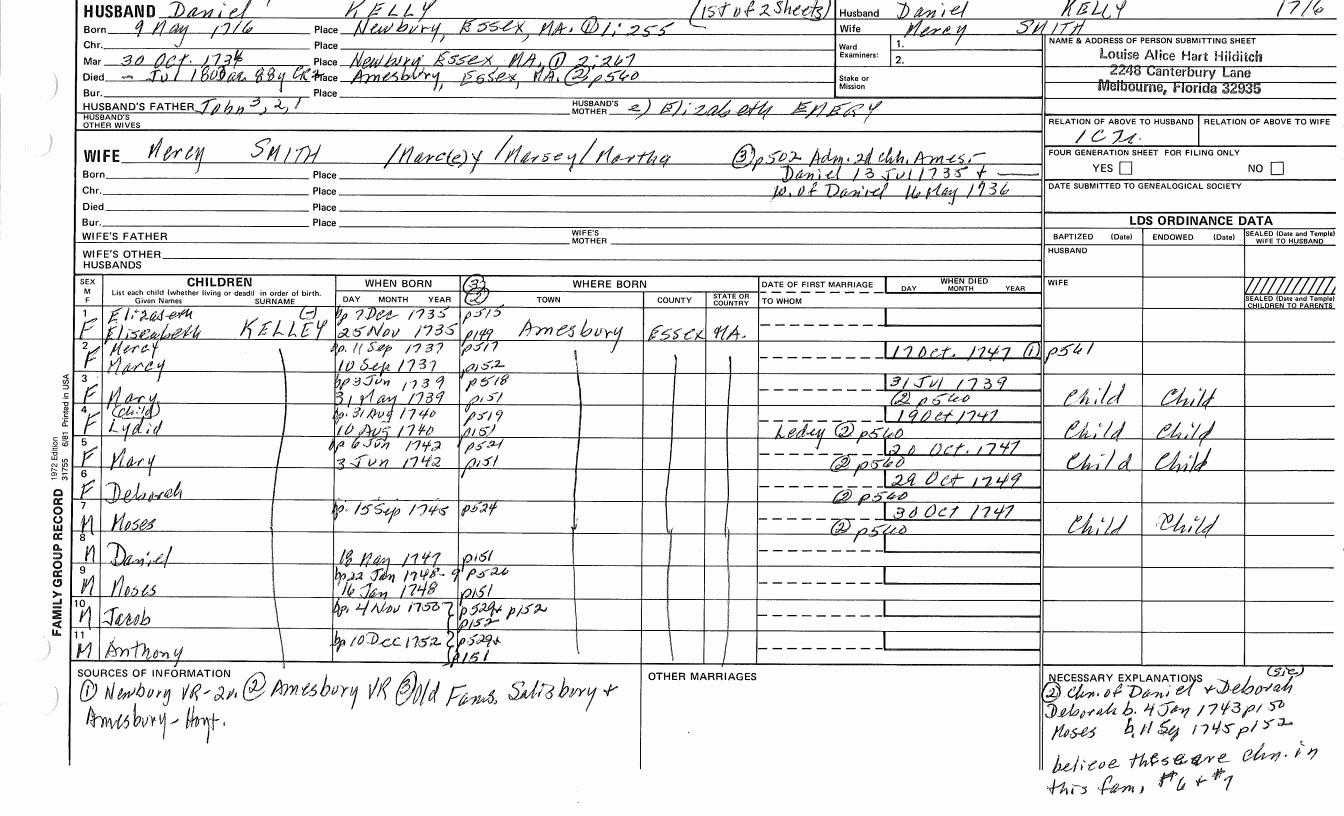 HUSBAND Daniel KELLY (1st of 2 Sheets)
Husband Daniel KELLY 1716
Born 9 May 1716 Place Newbury, Essex, MA. ① 1:255
Wife Mercy SMITH
Chr. Place
Ward Examiners: 1. 2.
Mar 30 Oct. 1734 Place Newbury Essex MA. ① 2:267
Died - Jul 1800 ae. 88y CR2 Place Amesbury, Essex, MA. ② p540
Stake or Mission
Bur. Place
NAME & ADDRESS OF PERSON SUBMITTING SHEET
Louise Alice Hart Hilditch
2248 Canterbury Lane
Melbourne, Florida 32935
HUSBAND'S FATHER John 3, 2, 1 HUSBAND'S MOTHER Elizabeth EMERY
HUSBAND'S OTHER WIVES
RELATION OF ABOVE TO HUSBAND RELATION OF ABOVE TO WIFE
WIFE Mercy SMITH /Marc(e)y /Marsey/Martha ③ p502 Adm. 2d chh. Ames.-
Born Place Daniel 13 Jul 1735 +
Chr. Place w. of Daniel 16 May 1736
Died Place
Bur. Place
FOUR GENERATION SHEET FOR FILING ONLY
YES NO
DATE SUBMITTED TO GENEALOGICAL SOCIETY
LDS ORDINANCE DATA
WIFE'S FATHER WIFE'S MOTHER
WIFE'S OTHER HUSBANDS
BAPTIZED (Date) ENDOWED (Date) SEALED (Date and Temple) WIFE TO HUSBAND
HUSBAND
WIFE
SEALED (Date and Temple) CHILDREN TO PARENTS
SEX M F CHILDREN WHEN BORN ③ WHERE BORN DATE OF FIRST MARRIAGE WHEN DIED
List each child (whether living or dead) in order of birth.
Given Names SURNAME DAY MONTH YEAR ② TOWN COUNTY STATE OR COUNTRY TO WHOM DAY MONTH YEAR
1 Elizabeth (-) bp 7 Dec 1735 p515
F Eliseabeth KELLEY 25 Nov 1735 p149 Amesbury Essex MA.
2 Mercy bp. 11 Sep 1737 p517 17 Oct. 1747 ① p561
F Marcy 10 Sep 1737 p152
3 bp 3 Jun 1739 p518 31 Jul 1739
F Mary 31 May 1739 p151 ② p540 Child Child
4 (Child) bp. 31 Aug 1740 p519 19 Oct 1747
F Lydid 10 Aug 1740 p151 Ledey ② p540 Child Child
5 bp 6 Jun 1742 p521 20 Oct. 1747
F Mary 3 Jun 1742 p151 ② p540 Child Child
6 29 Oct 1749
F Deborah ② p540
7 bp. 15 Sep 1745 p524 30 Oct 1747
M Moses ② p540 Child Child
8
M Daniel 18 May 1747 p151
9 bp 22 Jan 1748-9 p526
M Moses 16 Jan 1748 p151
10 bp. 4 Nov 1750 p529+ p152
M Jacob p152
11 bp 10 Dec 1752 p529+
M Anthony p151
SOURCES OF INFORMATION
① Newbury VR-2v. ② Amesbury VR ③ Old Fams, Salisbury +
Amesbury - Hoyt.
OTHER MARRIAGES
NECESSARY EXPLANATIONS (sic)
② Chn. of Daniel + Deborah
Deborah b. 4 Jan 1743 p150
Moses b. 11 Sep 1745 p152
believe these are chn. in
this fam. #6 + #7
FAMILY GROUP RECORD 1972 Edition 31755 6/81 Printed in USA